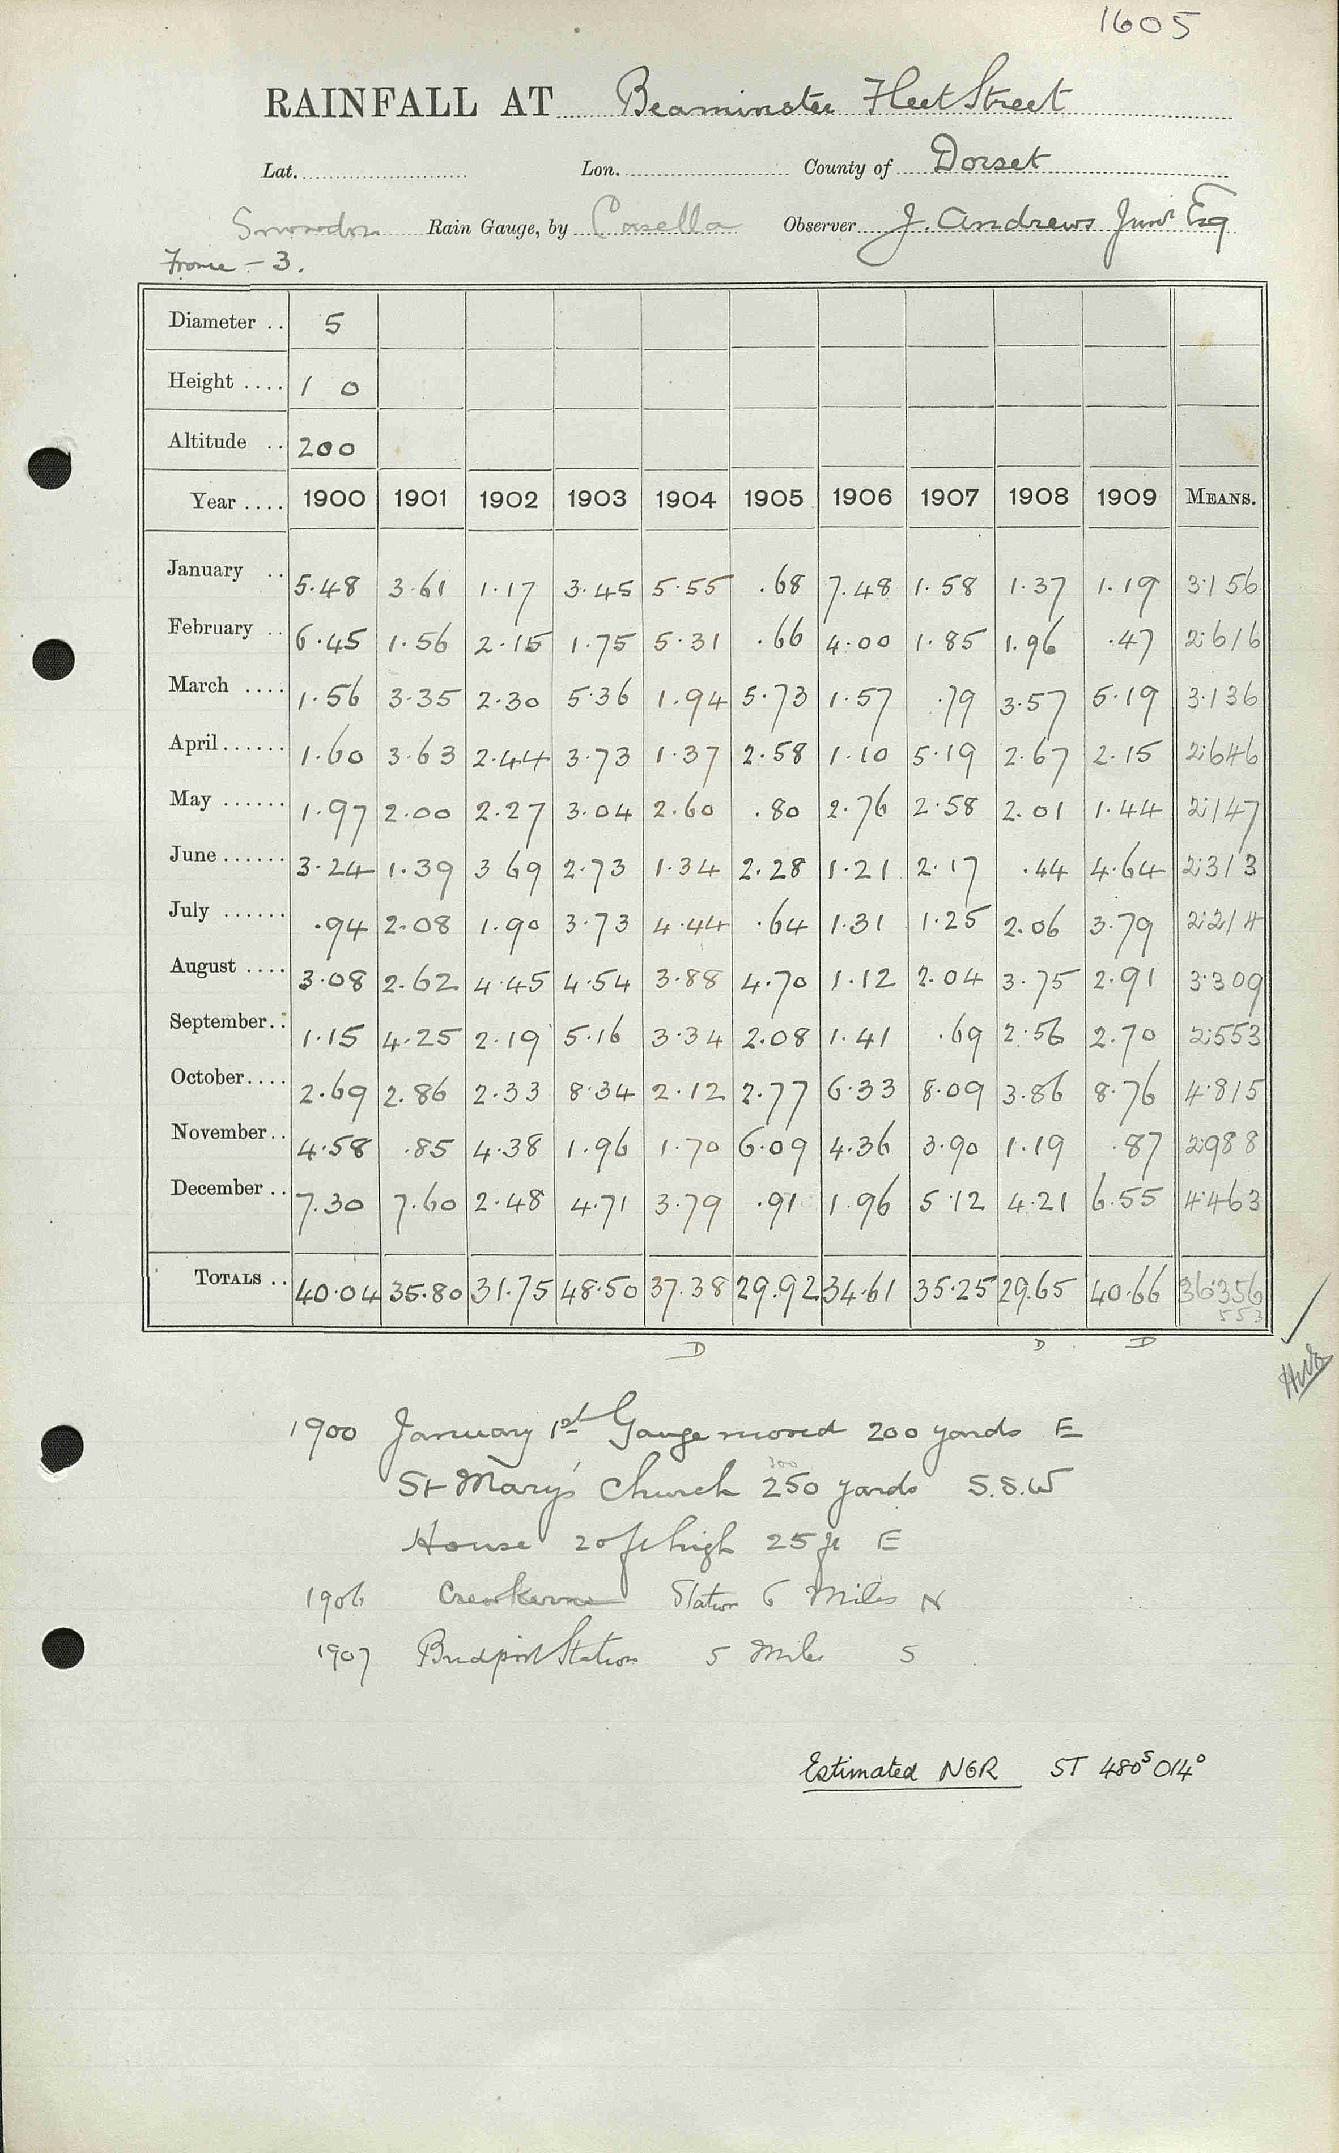 1605
RAINFALL AT Beaminster Fleet Street
Lat. Lon. County of Dorset
Snowdon Rain Gauge, by Casella Observer J. Andrews Junr Esq
Frome - 3.
Diameter .. 5
Height .... 1 0
Altitude .. 200
Year .... 1900 1901 1902 1903 1904 1905 1906 1907 1908 1909 MEANS.
January .. 5.48 3.61 1.17 3.45 5.55 .68 7.48 1.58 1.37 1.19 3.156
February .. 6.45 1.56 2.15 1.75 5.31 .66 4.00 1.85 1.96 .47 2.616
March .... 1.56 3.35 2.30 5.36 1.94 5.73 1.57 .79 3.57 5.19 3.136
April ...... 1.60 3.63 2.44 3.73 1.37 2.58 1.10 5.19 2.67 2.15 2.646
May ...... 1.97 2.00 2.27 3.04 2.60 .80 2.76 2.58 2.01 1.44 2.147
June ...... 3.24 1.39 3 69 2.73 1.34 2.28 1.21 2.17 .44 4.64 2.313
July ...... .94 2.08 1.90 3.73 4.44 .64 1.31 1.25 2.06 3.79 2.214
August .... 3.08 2.62 4.45 4.54 3.88 4.70 1.12 2.04 3.75 2.91 3.309
September .. 1.15 4.25 2.19 5.16 3.34 2.08 1.41 .69 2.56 2.70 2.553
October .... 2.69 2.86 2.33 8.34 2.12 2.77 6.33 8.09 3.86 8.76 4.815
November .. 4.58 .85 4.38 1.96 1.70 6.09 4.36 3.90 1.19 .87 2.988
December .. 7.30 7.60 2.48 4.71 3.79 .91 1.96 5.12 4.21 6.55 4.463
TOTALS .. 40.04 35.80 31.75 48.50 37.38 29.92 34.61 35.25 29.65 40.66 36.356
553
D D D
1900 January 1st Gauge moved 200 yards E
300
St Mary's Church 250 yards S.S.W
House 20 ft high 25 ft E
1906 Crewkerne Station 6 Miles N
1907 Bridport Station 5 Miles S
Estimated NGR ST 480⁵ 014⁰